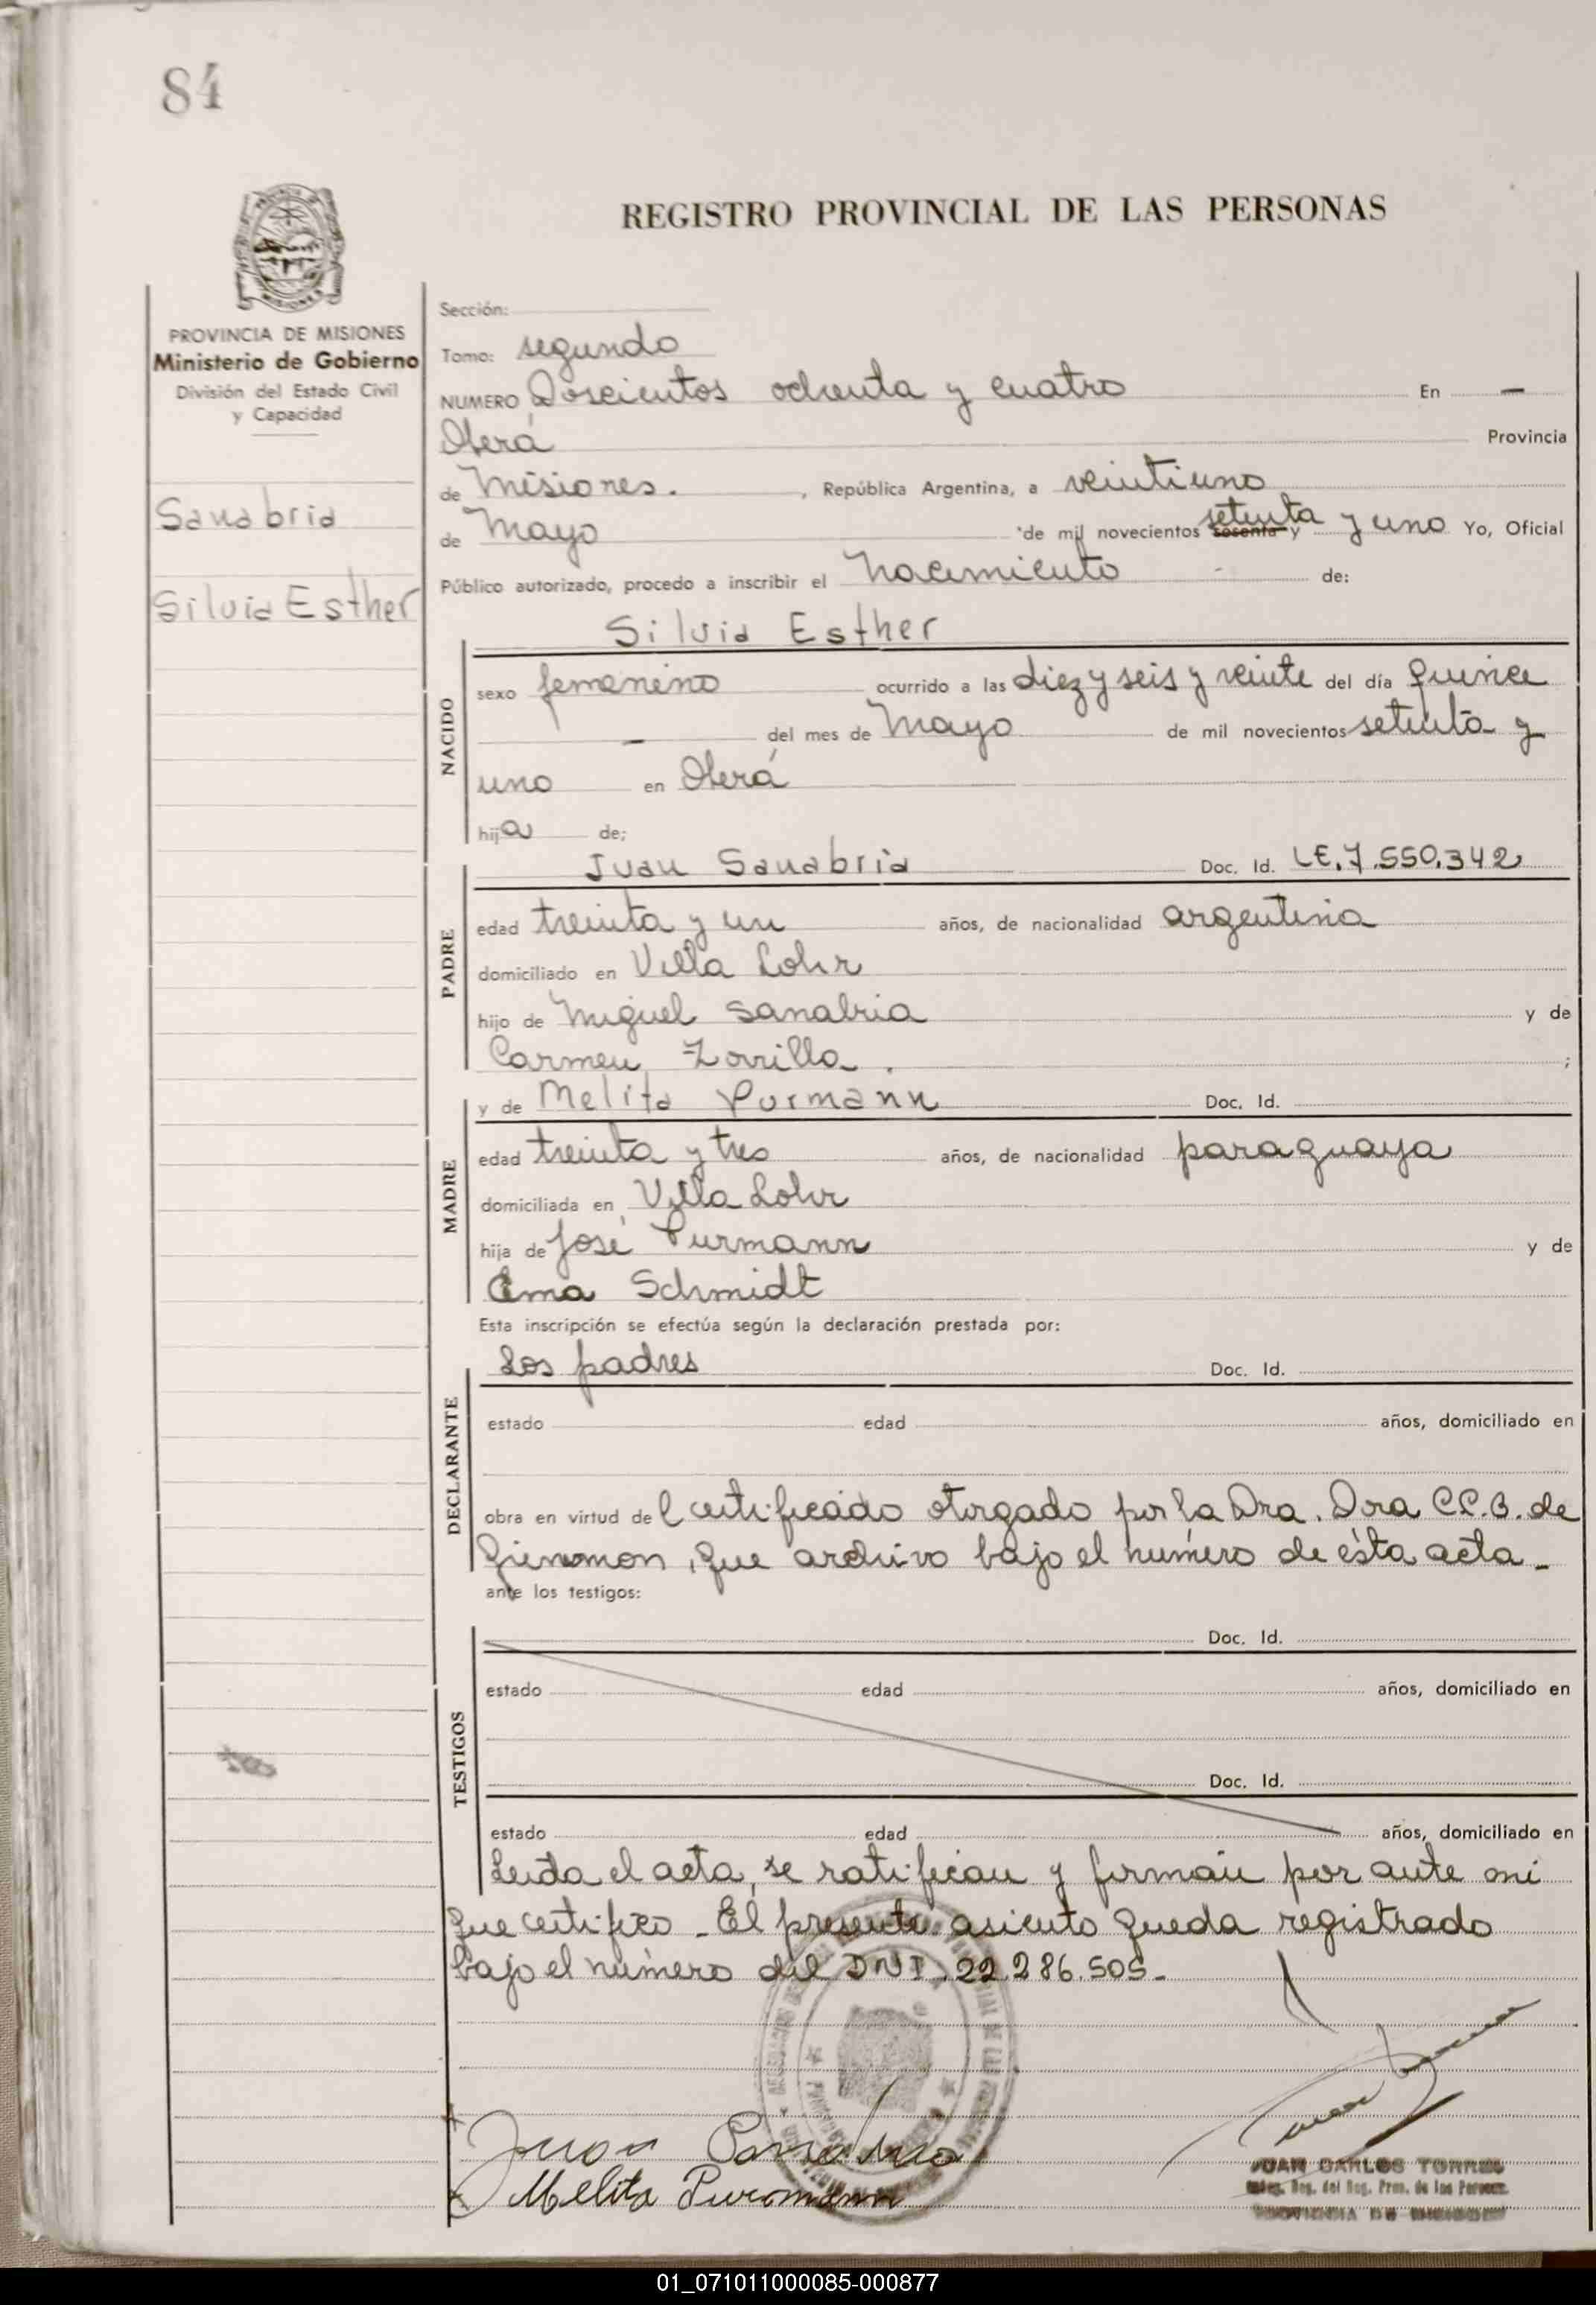 84
REGISTRO PROVINCIAL DE LAS PERSONAS
PROVINCIA DE MISIONES
Ministerio de Gobierno
División del Estado Civil
y Capacidad
Sanabria
Silvia Esther
Sección:
Tomo: segundo
NUMERO Doscientos ochenta y cuatro En —
Oberá Provincia
de Misiones. , República Argentina, a veintiuno
de Mayo de mil novecientos setenta sesenta y y uno Yo, Oficial
Público autorizado, procedo a inscribir el nacimiento de:
Silvia Esther
NACIDO
sexo femenino ocurrido a las diez y seis y veinte del día quince
— del mes de Mayo de mil novecientos setenta y
uno en Oberá
hija de;
PADRE
Juan Sanabria Doc. Id. L.E. 7.550.342
edad treinta y un años, de nacionalidad argentina
domiciliado en Villa Lohr
hijo de Miguel Sanabria y de
Carmen Zorrilla. ;
MADRE
y de Melita Purmann Doc. Id.
edad treinta y tres años, de nacionalidad paraguaya
domiciliada en Villa Lohr
hija de José Purmann y de
Ema Schmidt
Esta inscripción se efectúa según la declaración prestada por:
DECLARANTE
Los padres Doc. Id.
estado edad años, domiciliado en
obra en virtud del certificado otorgado por la Dra. Dora de
que archivo bajo el número de ésta acta -
ante los testigos:
TESTIGOS
Doc. Id.
estado edad años, domiciliado en
Doc. Id.
estado edad años, domiciliado en
Leida el acta, se ratifican y firman por ante mi
que certifico - El presente asiento queda registrado
bajo el número del DNI. 22.286.505-
Juan Sanabria
Melita Purmann
JUAN CARLOS TORRES
01_071011000085-000877